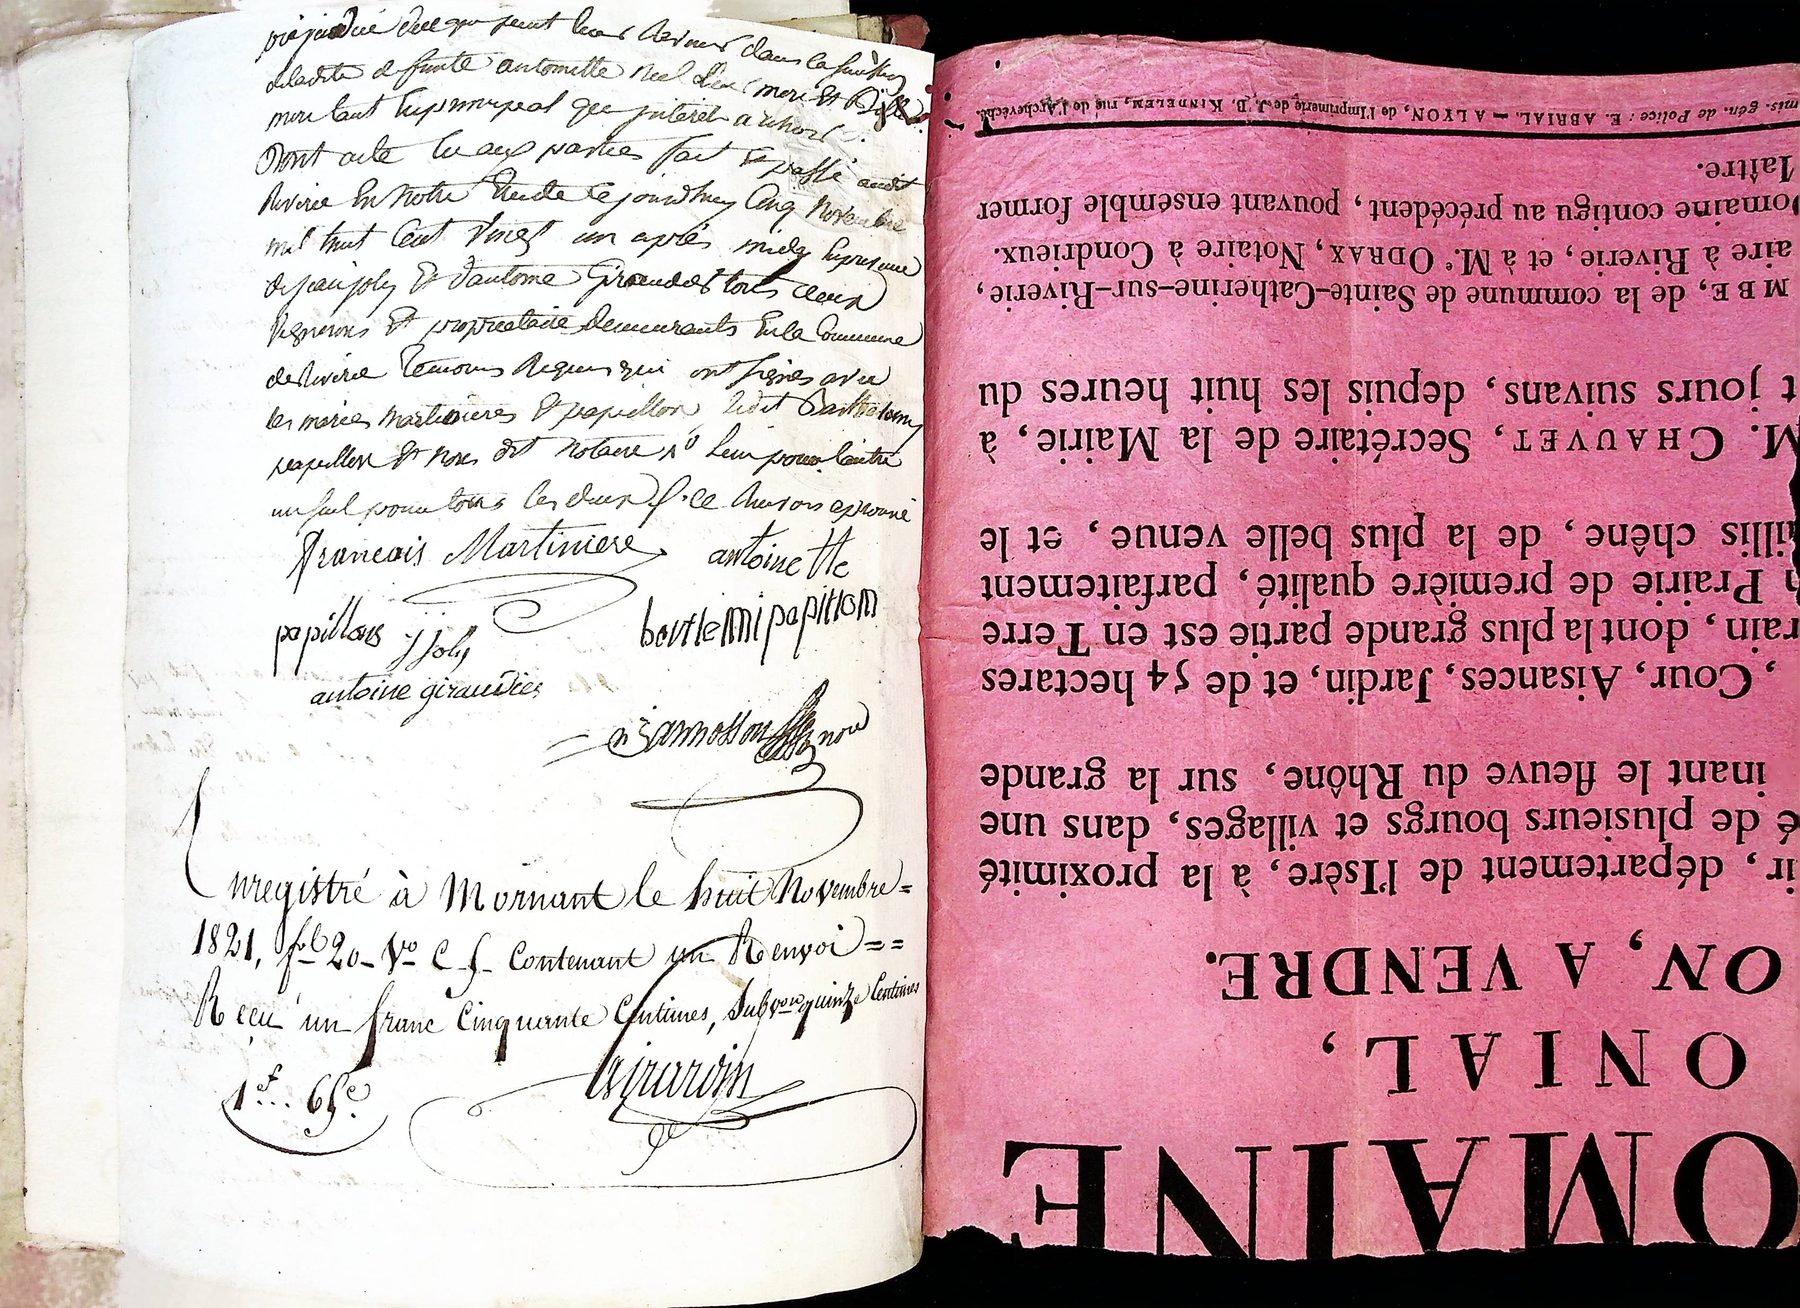 préjudice de ce qui peut leur revenir dans la succession
de ladite defunte antoinette Riel leur mere et Belle
mere tant en principal que interet a echoir.
Dont acte lu aux parties fait et passé audit
Riverie En notre Etude ce jourdhuy Cinq novembre
mil huit Cent Vingt un après midy En presence
de jean joly Et d'antoine Giraudier tous deux
vignerons Et proprietaire demeurants En la Commune
de Riverie temoins Requis qui ont signés avec
les mariés martinieres Et papillon, ledit Barthelemy
papillon Et nous dit notaire
un seul pour tous les deux
francois Martiniere antoinette
papillons j joly bortlemi papillon
antoine giraudier
Enregistré à Mornant le huit Novembre =
1821, fol 20 Vo C. f. Contenant un Renvoi ==
Reçu un franc Cinquante Centimes, Subvon quinze Centimes
Girardin
1f... 65c.
OMAINE
ONIAL,
ON, A VENDRE.
ir, département de l'Isère, à la proximité
é de plusieurs bourgs et villages, dans une
inant le fleuve du Rhône, sur la grande
, Cour, Aisances, Jardin, et de 54 hectares
rain, dont la plus grande partie est en Terre
n Prairie de première qualité, parfaitement
illis chêne, de la plus belle venue, et le
M. CHAUVET, Secrétaire de la Mairie, à
t jours suivans, depuis les huit heures du
MBE, de la commune de Sainte-Catherine-sur-Riverie,
aire à Riverie, et à M.e ODRAX, Notaire à Condrieux.
Domaine contigu au précédent, pouvant ensemble former
laître.
mis. gén. de Police : E. ABRIAL. — A LYON, de l'Imprimerie de J. B. KINDELEM, rue de l'Archevêché.